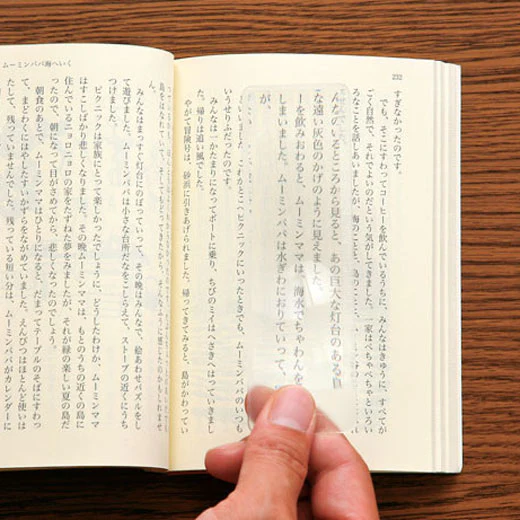 232
すぎなかったのです。
でも、そこにすわってコーヒーを飲んでいるうちに、みんなはきゅうに、すべてが
ごく自然で、それでよいのだという気がしてきました。一家はぺちゃぺちゃといろい
ろなことを話しあいましたが、海のことと、島のことに
んなのいるところから見ると、あの巨大な灯台のある島
な遠い灰色のかげのように見えました。
ーを飲みおわると、ムーミンママは、海水でちゃわんを
しまいました。ムーミンパパは水ぎわにおりていって、
が、
といいました。これがどこへピクニックにいったときでも、ムーミンパパのいつも
いうせりふだったのです。
みんなは一かたまりになってボートに乗り、ちびのミイはへさきへはっていきまし
た。帰りは追い風でした。
やがて冒険号は、砂浜に引きあげられました。帰ってきてみると、島がかわってい
ムーミンパパ海へいく
みんなはまっすぐ灯台にのぼっていって、その晩はみんなで、絵あわせパズルをし
て遊びました。ムーミンパパは小さな台所だなをこしらえて、ストーブの近くにうち
つけました。
ピクニックは家族にとって楽しかったでしょうに、どうしたわけか、ムーミンママ
はすこしばかり悲しくなりました。その晩ムーミンママは、もとのうちの近くの島に
住んでいるニョロニョロの家をたずねた夢をみましたが、それが緑の楽しい夏の島だ
ったので、朝になって目がさめてから、悲しくなったのでしょう。
朝食のあとで、ムーミンママはひとりになると、だまってテーブルのそばにすわっ
て、まどわくにはやしたすいかずらをながめていました。えんぴつはほとんど使いは
たして、残っていません。残っている短い分は、ムーミンパパがカレンダーに